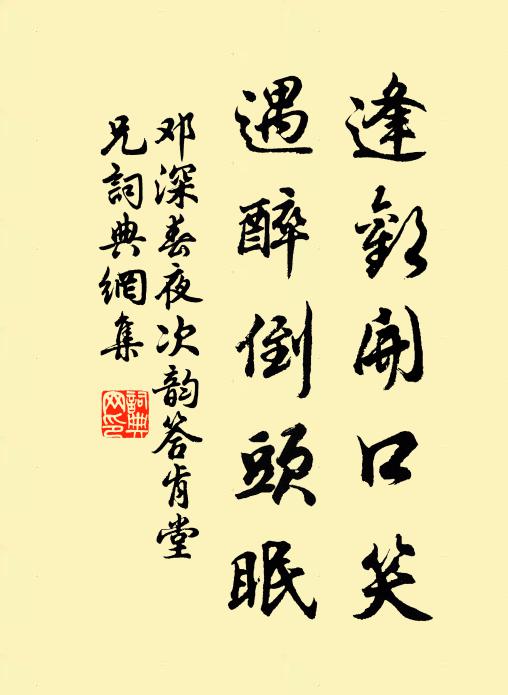 逢歡開口笑
遇醉倒頭眠
邓深春夜次韵答肯堂
兄詞典網集
詞典网印